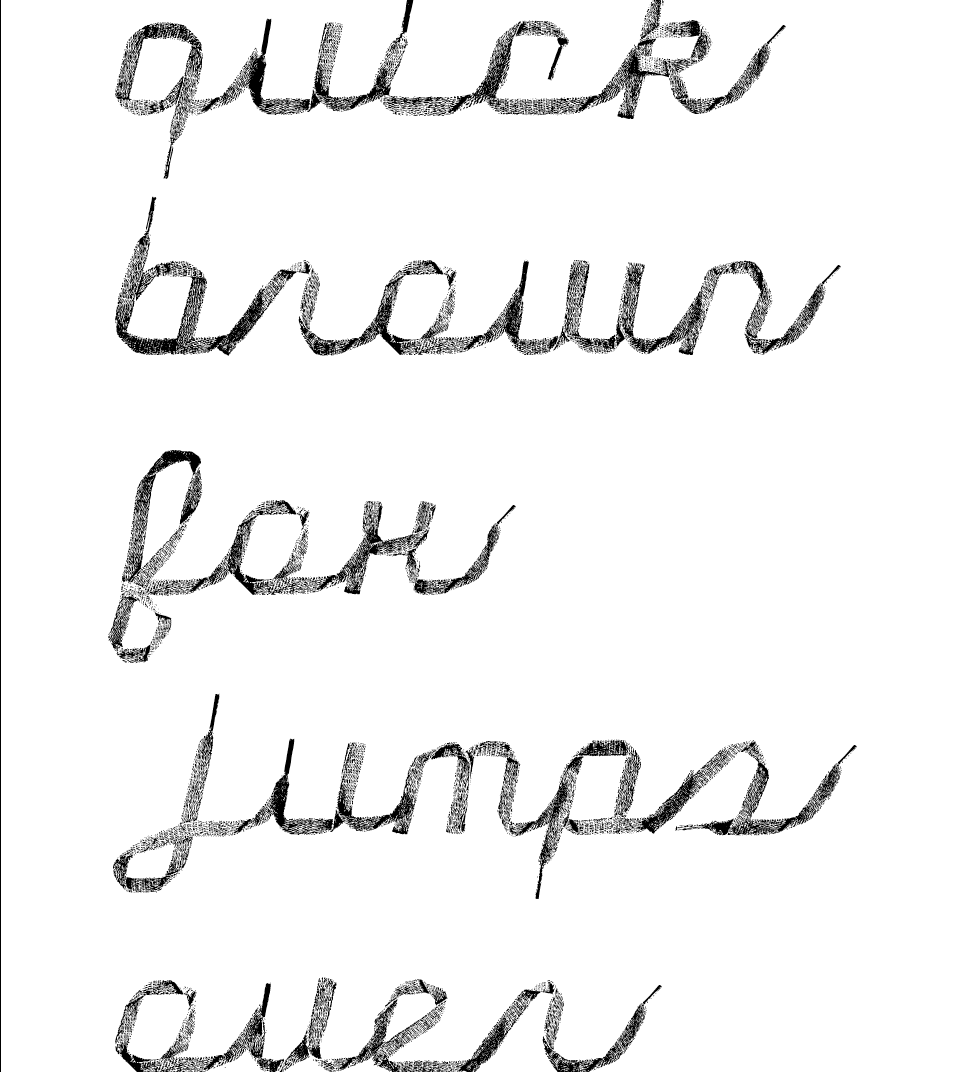 quick
brown
fox
jumps
over